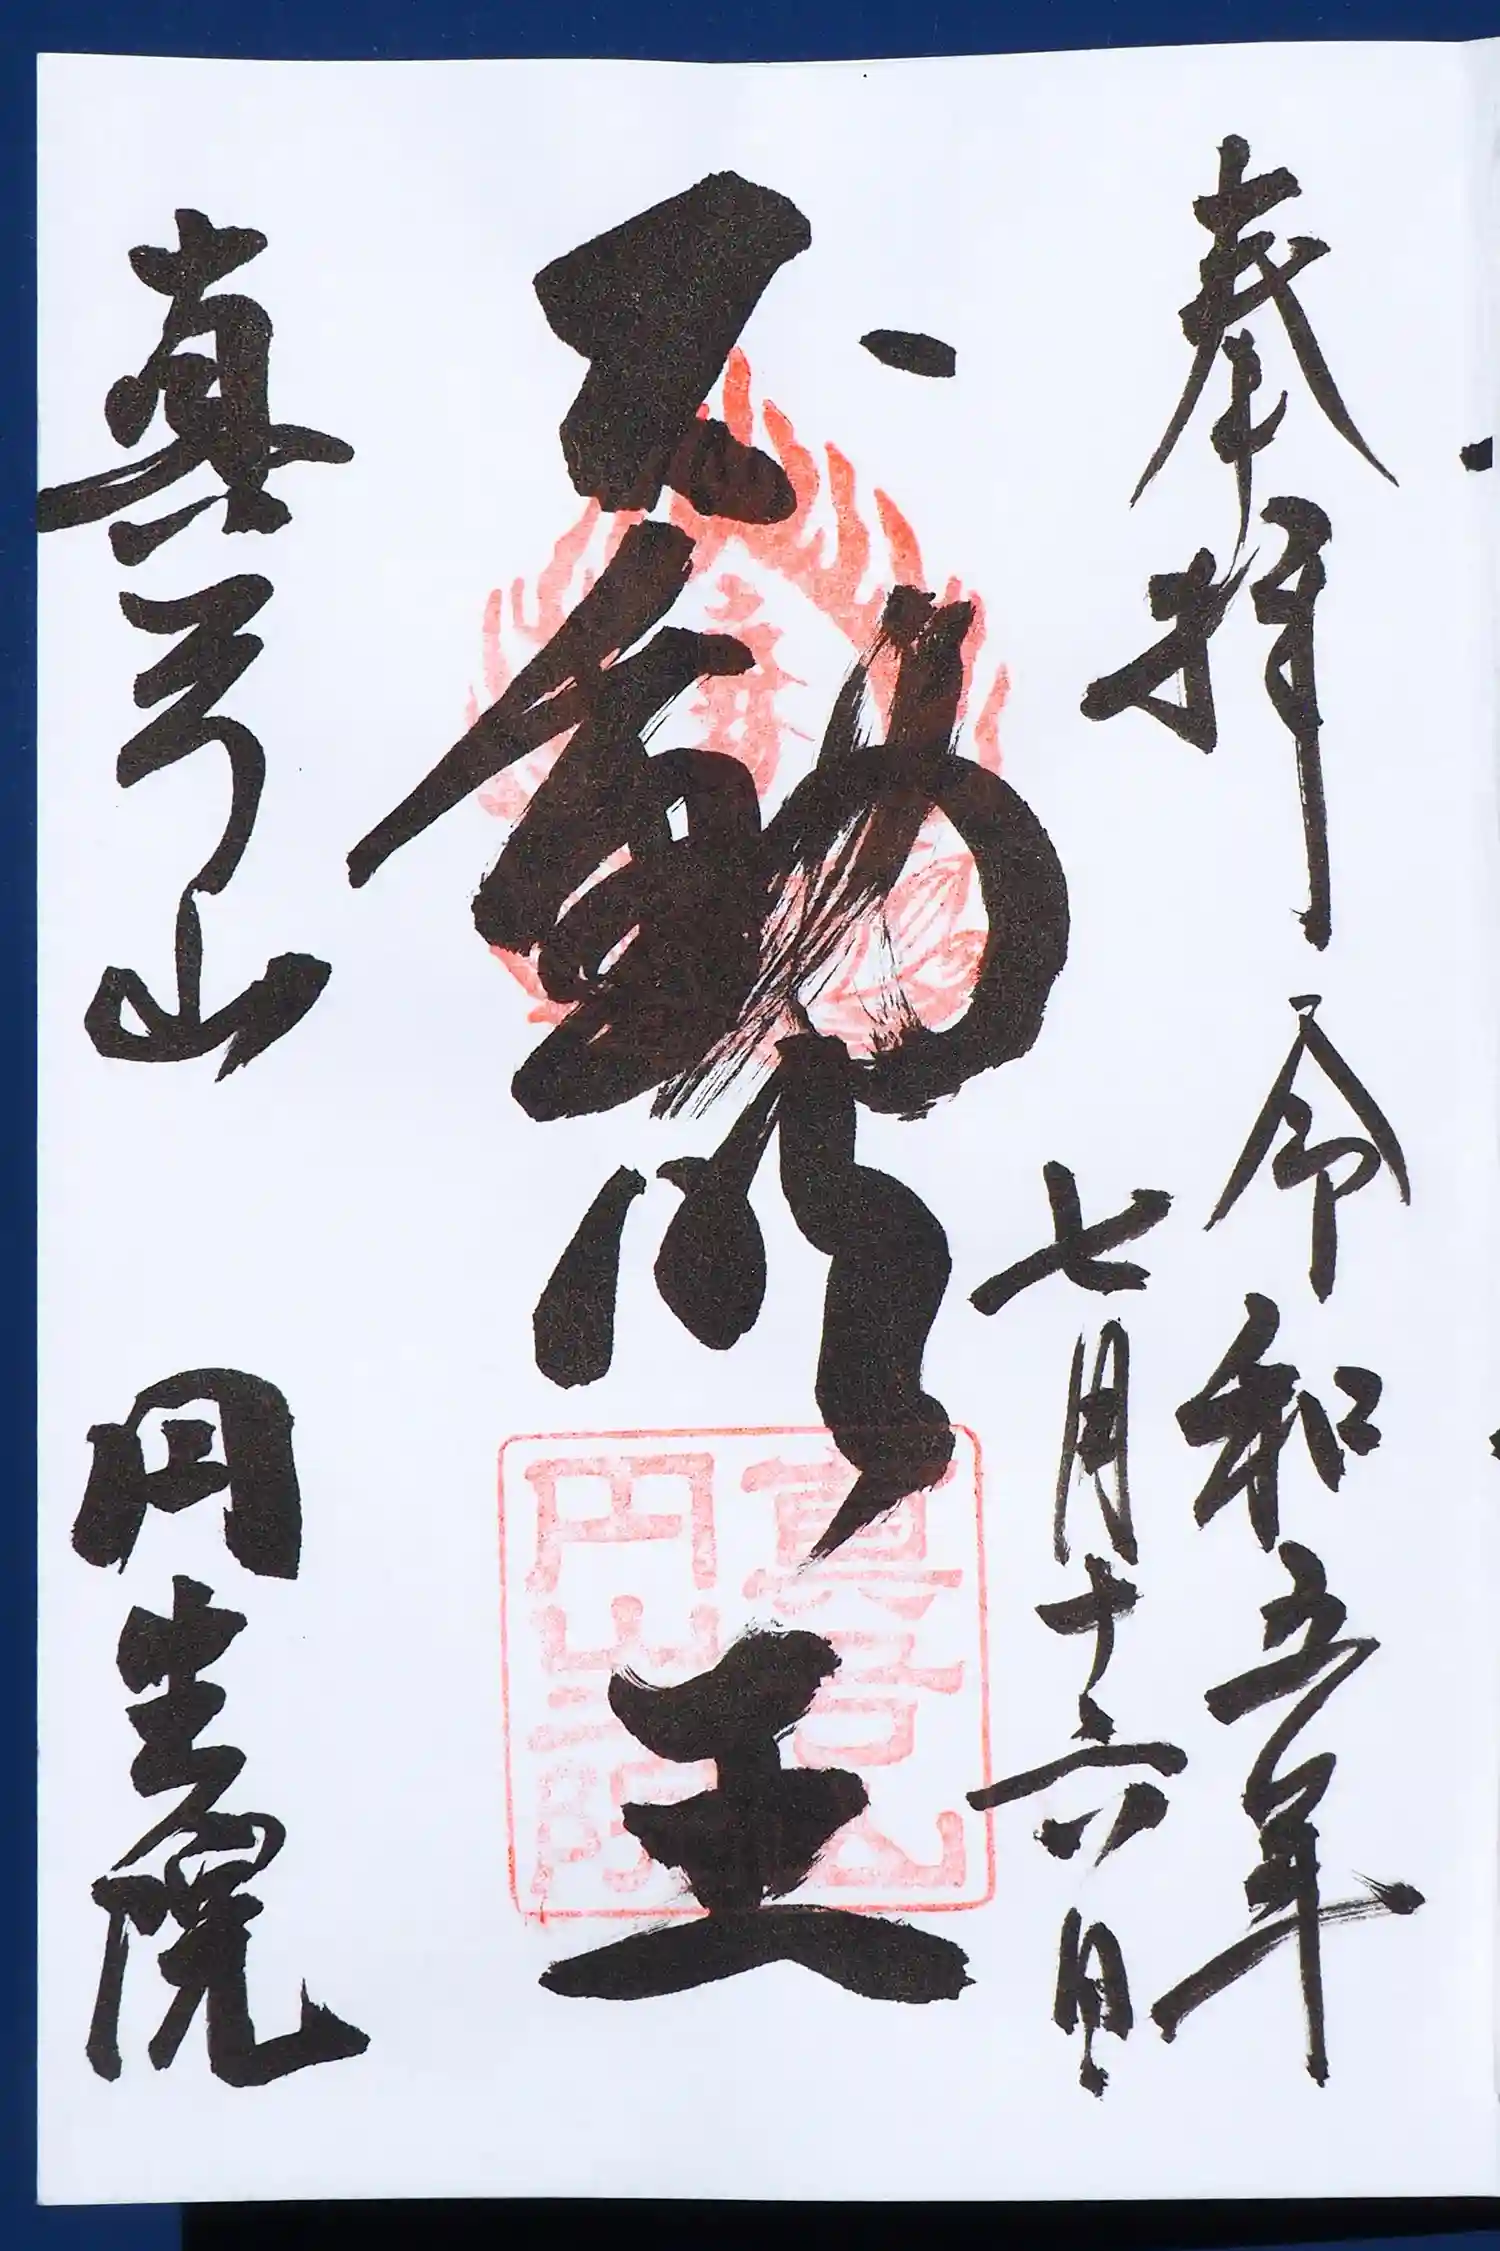 奉拝 令和五年
七月十六日
不動明王
真弓山 円生院
真弓山
円生院